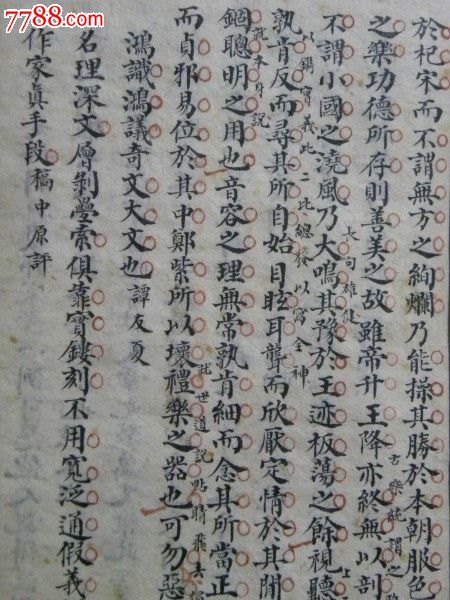 7788.com
於杞宋而不謂無方之絢爛乃能操其勝於本朝服色
之樂功德所存則善美之故雖帝升王降亦終無以剖
古樂統謂之
不謂小國之澆風乃大鳴其豫於王迹板蕩之餘視聽
長句雄健
孰肯反而尋其所自始目眩耳聾而欣厭定情於其閒
以鐫實義比二比總發以寫全神
錮聰明之用也音容之理無常孰肯細而念其所當正
就本身說
而貞邪易位於其中鄭紫所以壞禮樂之器也可勿惡
就世道說點睛飛去
鴻識鴻議奇文大文也譚友夏
名理深文層剝疊索俱靠實鏤刻不用寬泛通假義
作家眞手段稿中原評